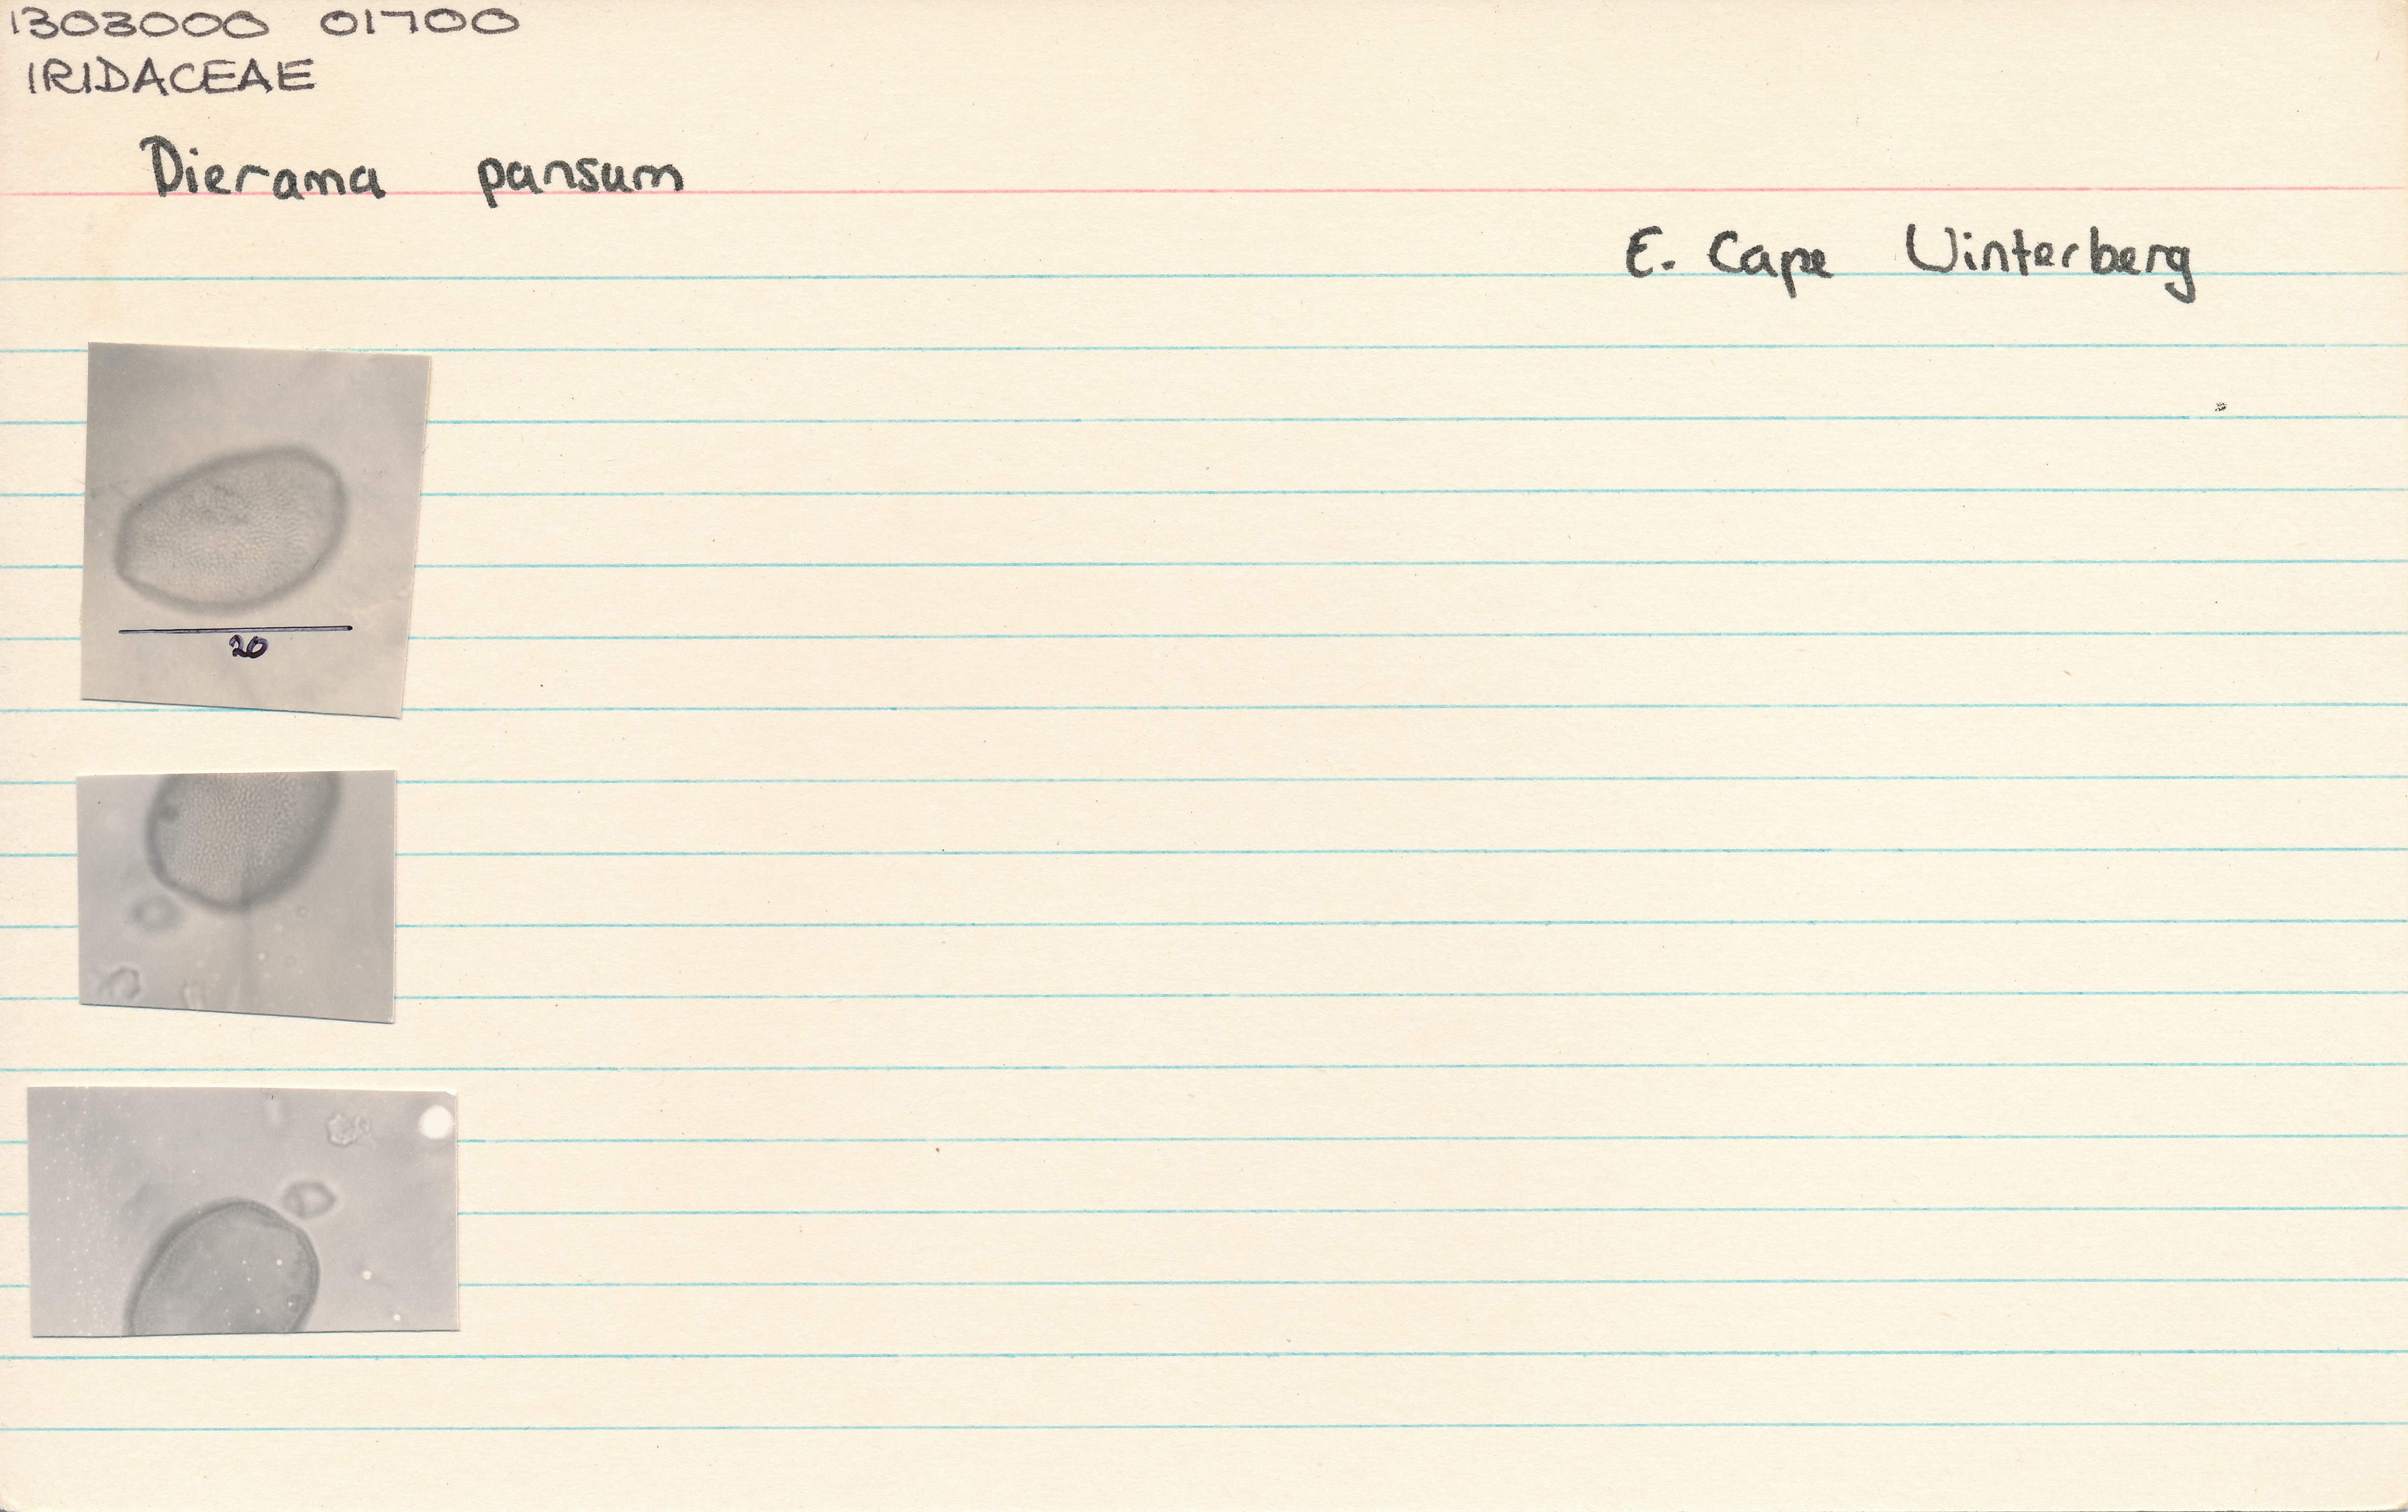 1303000 01700
IRIDACEAE
Dierama pansum
E. Cape Winterberg
20